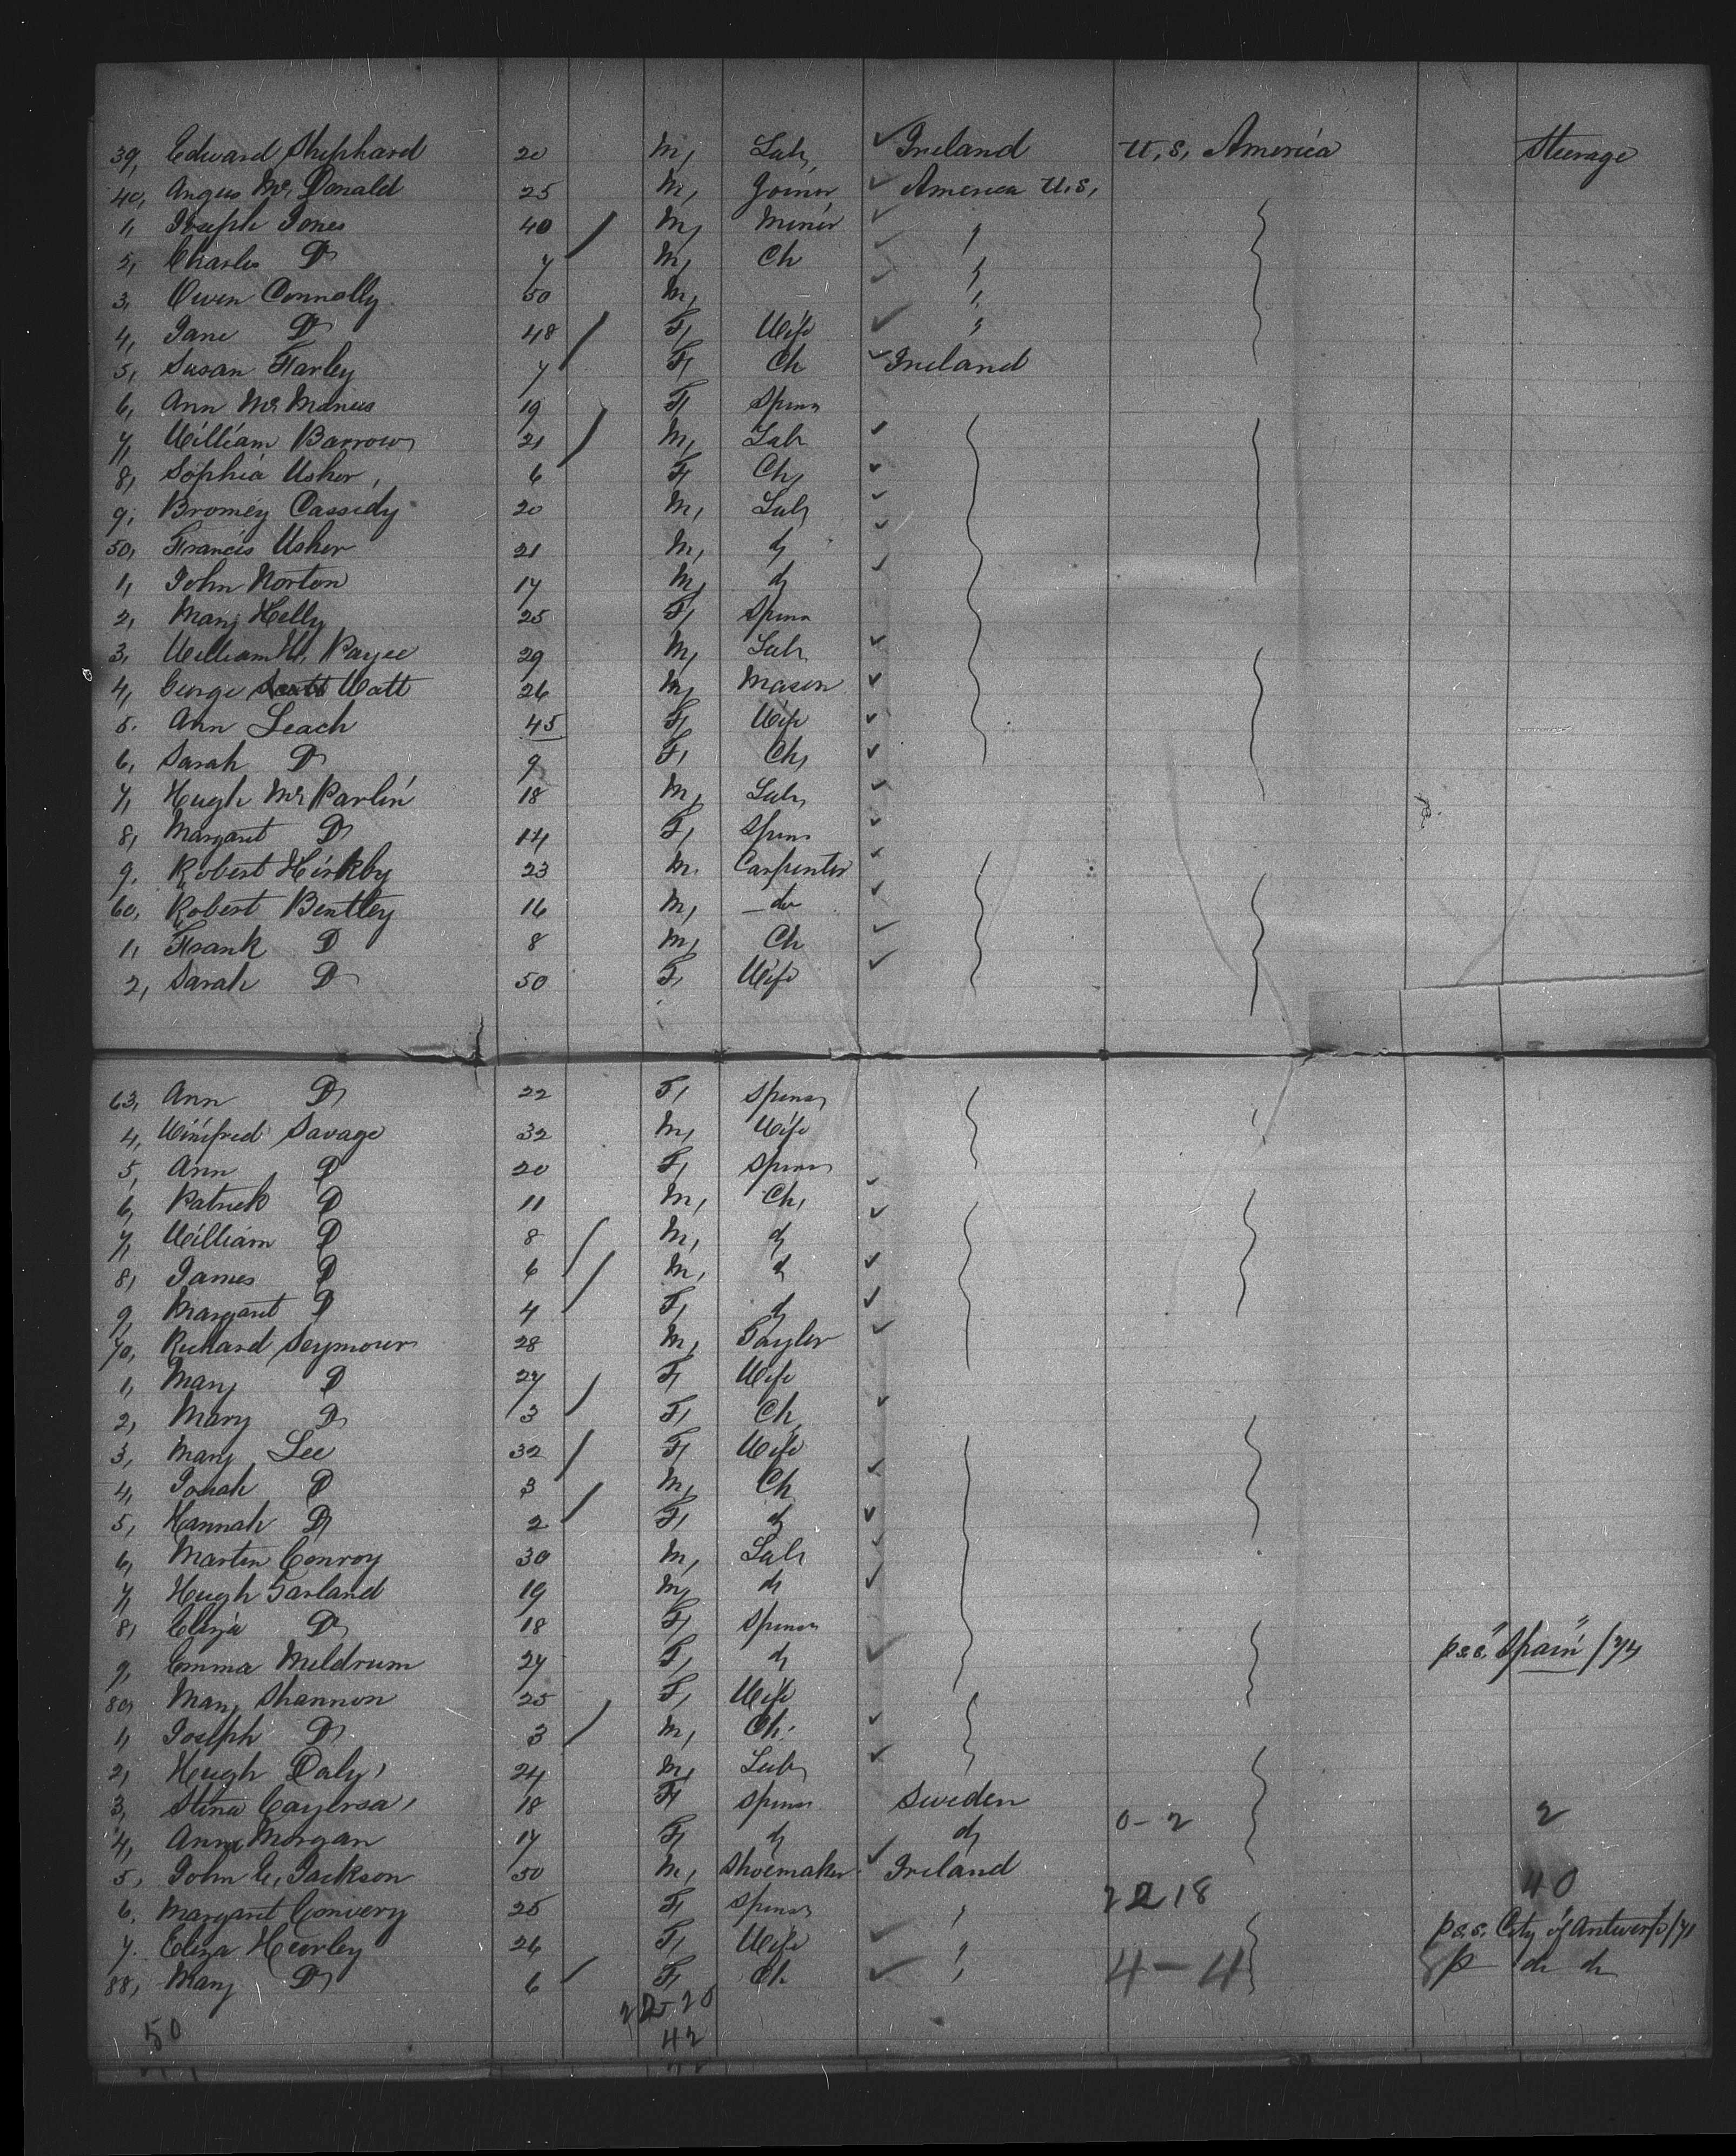 39, Edward Shephard 20 M, Lab, Ireland U, S, America Steerage
40, Angus Mc Donald 25 M, Joiner America U.S,
1, Joseph Jones 40 M, Miner "
2, Charles Do 7 M, Ch "
3, Owen Connolly 50 M, "
4, Jane Do 48 F, Wife "
5, Susan Farley 7 F, Ch Ireland
6, Ann Mc Manus 19 F, Spins
7, William Barrow 21 M, Lab
8, Sophia Usher, 6 F, Ch,
9, Bromey Cassidy 20 M, Lab,
50, Francis Usher 21 M, d
1, John Norton 17 M, d
2, Mary Kelly 25 F, Spins
3, William H, Payee 29 M, Lab
4, George Scott Watt 26 M, Mason
5. Ann Leach 45 F, Wife
6, Sarah Do 9 F, Ch,
7, Hugh Mc Parlin 18 M, Lab,
8, Margaret Do 14 F, Spins
9. Robert Kirkby 23 M. Carpenter
60, Robert Bentley 16 M, do
1, Frank D 8 M, Ch
2, Sarah D 50 F, Wife
63, Ann Do 22 F, Spins
4, Winifred Savage 32 M, Wife
5, Ann D 20 F, Spins
6, Patrick D 11 M, Ch,
7, William D 8 M, d
8, James D 6 M, d
9, Margaret D 4 F, d
70, Richard Seymour 28 M, Taylor
1, Mary D 27 F, Wife
2, Mary D 3 F, Ch
3, Mary Lee 32 F, Wife
4, Jonah D 3 M, Ch
5, Hannah D 2 F, d
6, Martin Conroy 30 M, Lab
7, Hugh Garland 19 M, d
8, Eliza Do 18 F, Spins
9, Emma Meldrum 27 F, d p s.s. "Spain"
80, Mary Shannon 25 F, Wife
1, Joseph D 3 M, Ch.
2, Hugh Daly, 24 M, Lab,
3, Stina 18 F, Spins Sweden
0 - 2 2
4, Anna Morgan 17 F, d d
5, John E, Jackson 50 M, Shoemaker Ireland
22 18 40
6, Margaret Convery 25 F, Spins "
7. Eliza Hurley 26 F, Wife " p s.s. City of Antwerp/71
88, Mary D 6 F, Ch " 4 - 4 p do do
42
50